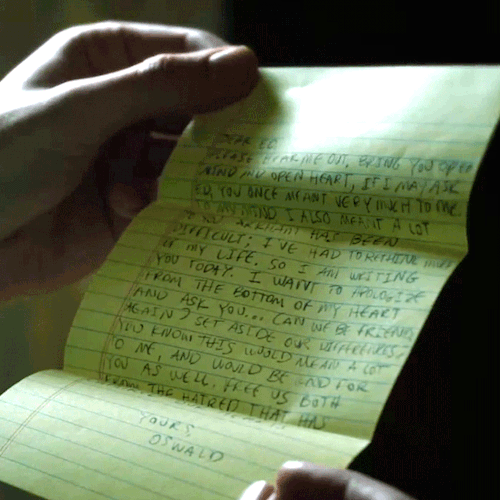 DEAR ED,
PLEASE HEAR ME OUT. BRING YOU OPEN
MIND AND OPEN HEART, IF I MAY ASK
ED, YOU ONCE MEANT VERY MUCH TO ME.
TO MY MIND I ALSO MEANT A LOT
HAS BEEN
DIFFICULT; I'VE HAD TO RETHINK MUCH
OF MY LIFE. SO I AM WRITING
YOU TODAY. I WANT TO APOLOGIZE
FROM THE BOTTOM OF MY HEART
AND ASK YOU... CAN WE BE FRIENDS
AGAIN? SET ASIDE OUR DIFFERENCES,
YOU KNOW THIS WOULD MEAN A LOT
TO ME, AND WOULD BE GOOD FOR
YOU AS WELL. FREE US BOTH
FROM THE HATRED THAT HAS
YOURS,
OSWALD